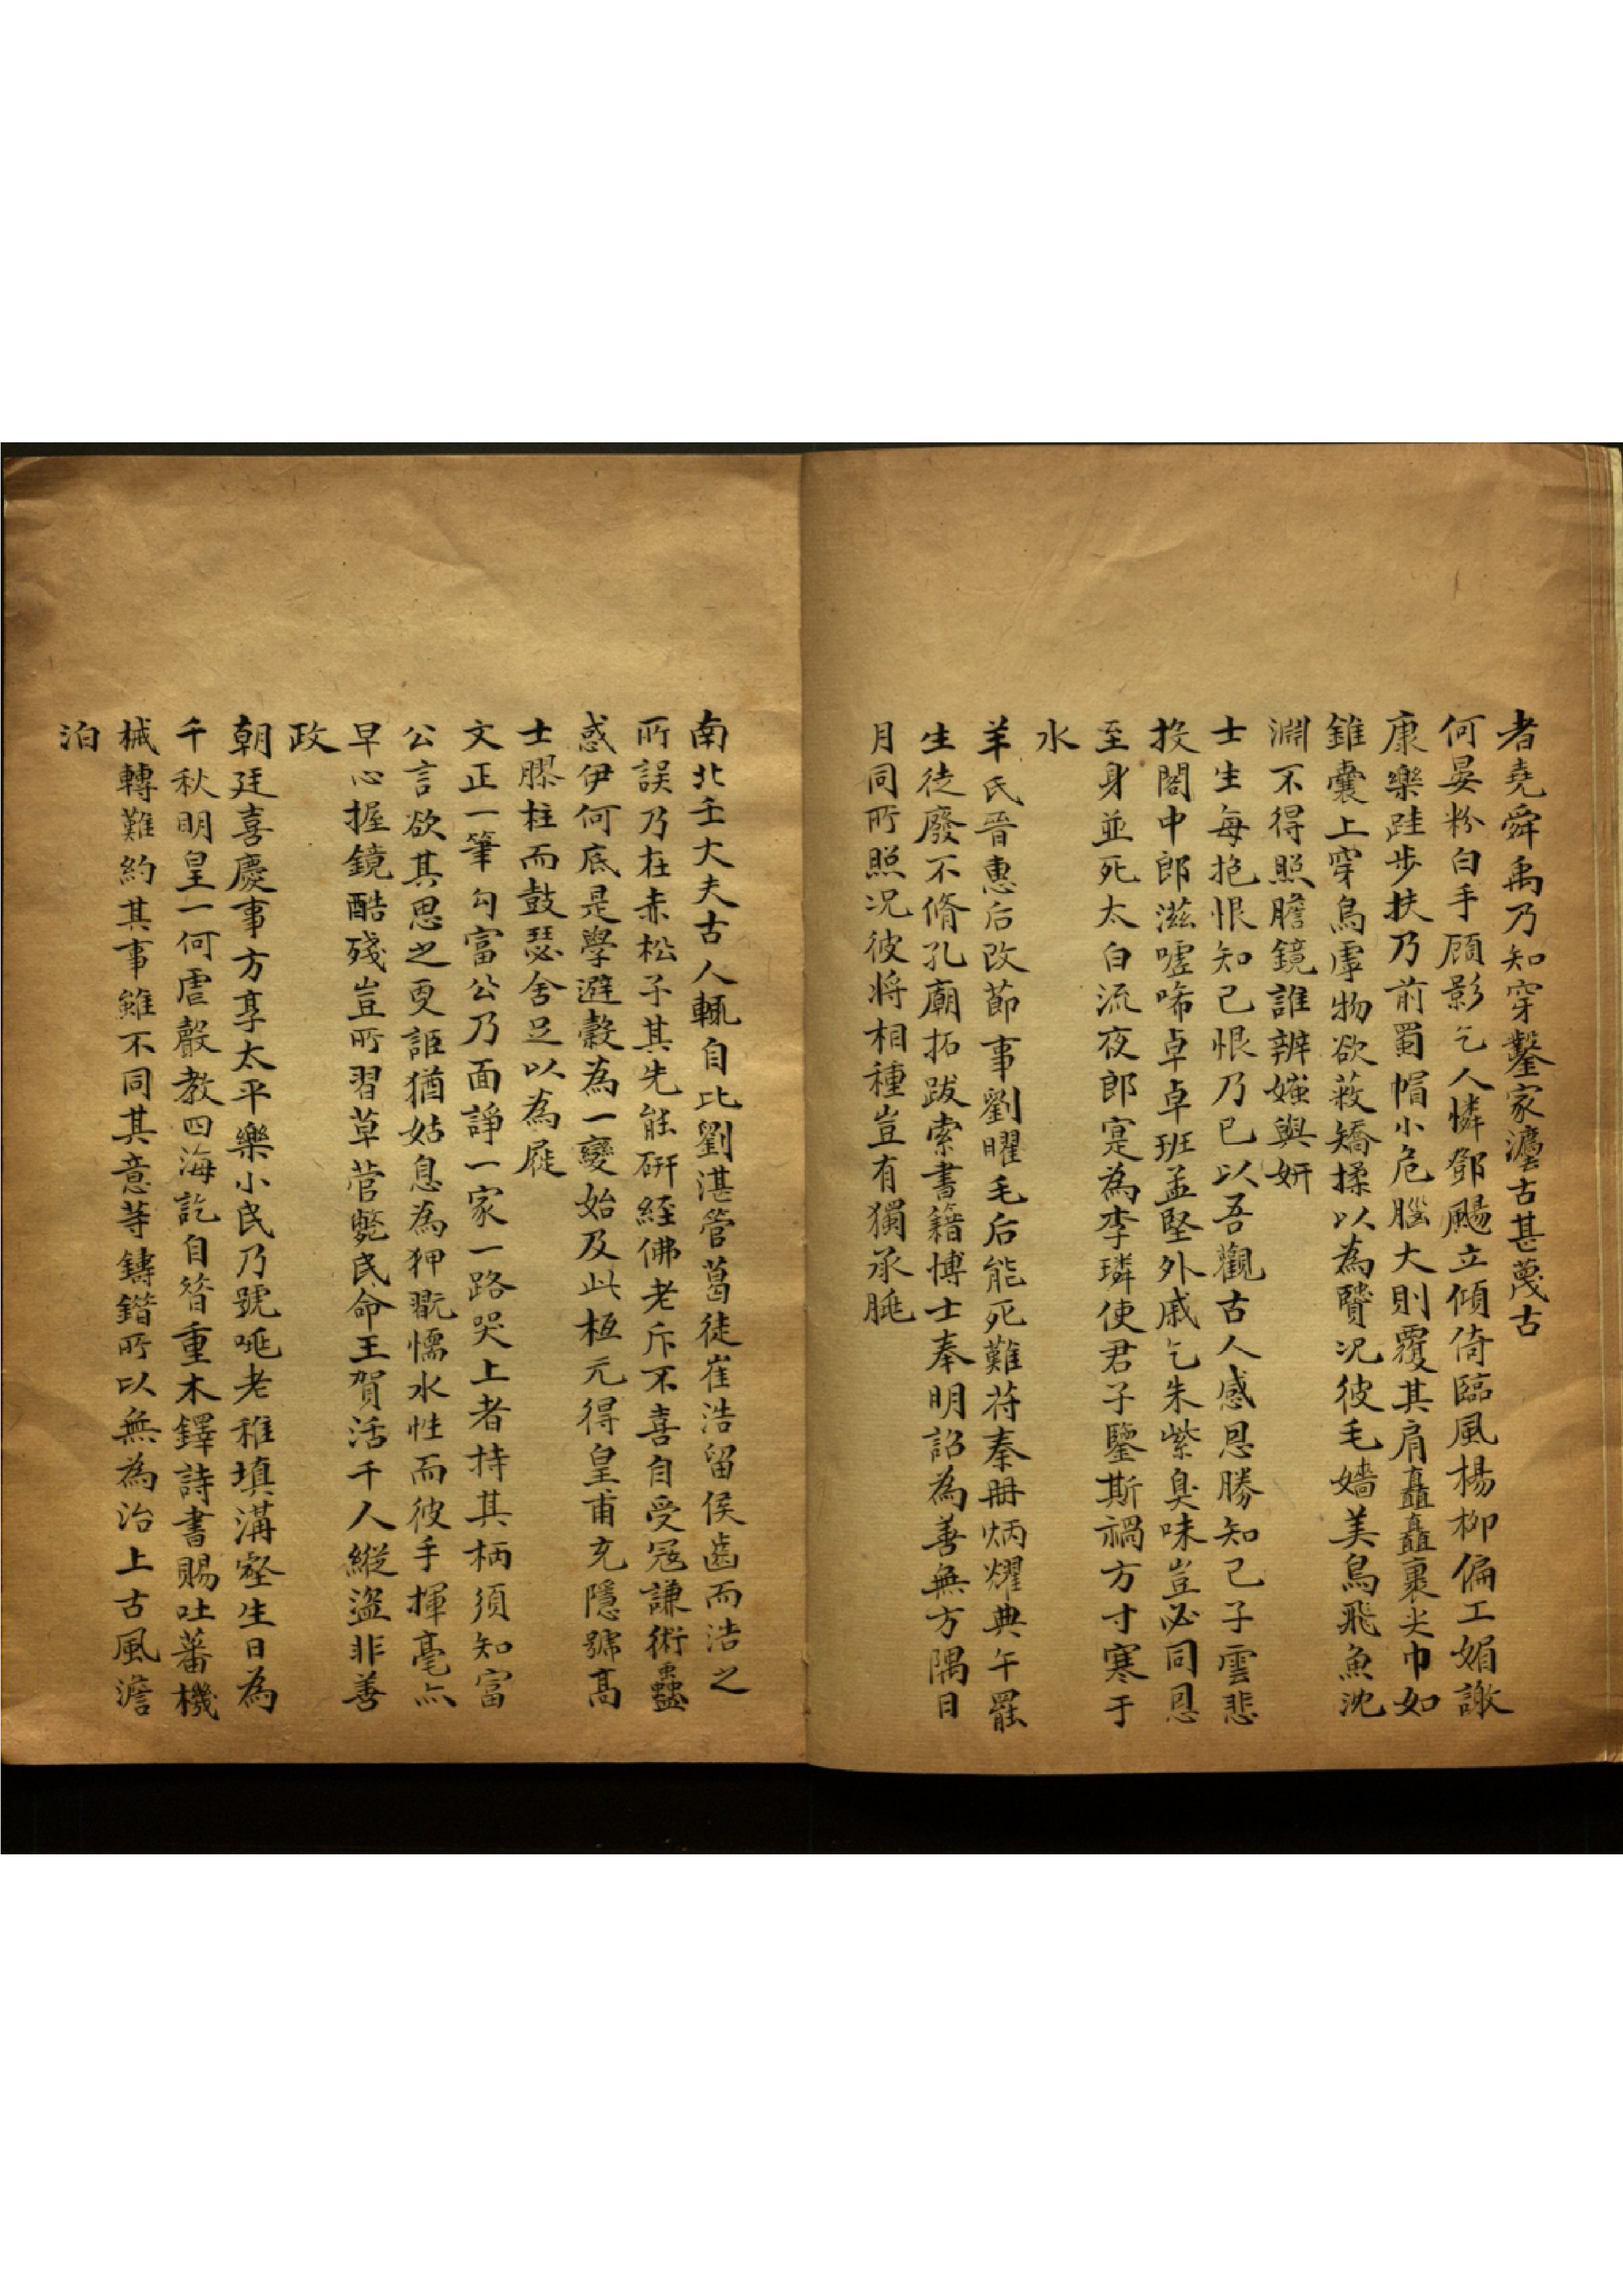 者堯舜禹乃知穿鑿家瀍古甚蔑古
何晏粉白手顧影乞人憐鄧颺立傾倚臨風楊柳偏工媚譤
康樂跬步扶乃前蜀帽小危腦大則覆其肩矗矗裹尖巾如
錐囊上穿鳥虖物欲蔽矯揉以為贒况彼毛嬙美鳥飛魚沈
淵不得照膽鏡誰辨媸與妍
士生每抱恨知己恨乃已以吾觀古人感恩勝知己子雲悲
投閣中郎滋噓唏卓卓班孟堅外戚乞朱紫臭味豈必同恩
至身並死太白流夜郎寔為李璘使君子鑒斯禍方寸寒于
水
羊氏晉惠后改節事劉曜毛后能死難苻秦冊炳燿典午罷
生徒廢不脩孔廟拓跋索書籍博士奉明詔為善無方隅日
月同所照况彼將相種豈有獨承朓
南北壬大夫古人輒自比劉湛管葛徒崔浩留侯齒而浩之
所誤乃在赤松子其先能硏經佛老斥不喜自受寇謙術蠱
惑伊何底是學避穀為一變始及此桓元得皇甫充隱號高
士膠柱而鼓瑟舍足以為屣
文正一筆勾富公乃面諍一家一路哭上者持其柄須知富
公言欲其思之更詎猶姑息為狎翫懦水性而彼手揮毫亦
早心握鏡酷殘豈所習草菅斃民命王賀活千人縱盜非善
政
朝廷喜慶事方享太平樂小民乃號咷老稚填溝壑生日為
千秋明皇一何虐聲教四海訖自昝重木鐸詩書賜吐蕃機
械轉難約其事雖不同其意等鑄錯所以無為治上古風澹
泊